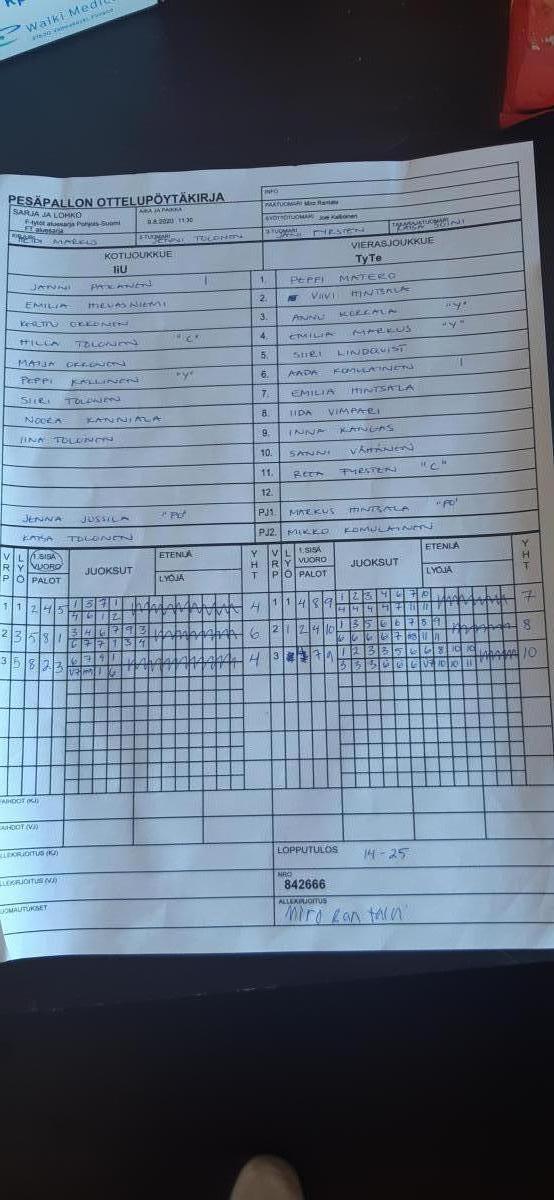 Walki Medic
PESÄPALLON OTTELUPÖYTÄKIRJA
INFO
SARJA JA LOHKO
F-tytöt aluesarja Pohjois-Suomi
FT aluesarja
AIKA JA PAIKKA
9.8.2020 11:30
PÄÄTUOMARI Miro Rantala
SYÖTTÖTUOMARI
2-TUOMARI JENNI TOLONEN
3-TUOMARI JANI TYRSTEN
TAKARAJATUOMARI KAISA
HEIDI MARKUS
KOTIJOUKKUE
IiU
VIERASJOUKKUE
TyTe
JANNI PAKANEN 1. PEPPI MATERO
EMILIA HIRVASNIEMI 2. VIIVI HINTSALA
KERTTU OKKONEN 3. ANNU KORKALA "V"
HILLA TOLONEN "C" 4. EMILIA MARKUS "V"
MAIJA OKKONEN 5. SIIRI LINDQVIST
PEPPI KALLINEN "V" 6. AADA KOMULAINEN I
SIIRI TOLONEN 7. EMILIA HINTSALA
NOORA KANNIALA 8. IIDA VIMPARI
IINA TOLONEN 9. INNA KANGAS
10. SANNI
11. REEA TYRSTEN "C"
12.
JENNA JUSSILA "PJ" PJ1. MARKUS HINTSALA "PJ"
KAISA TOLONEN PJ2. MIKKO KOMULAINEN
VRP LYÖ 1.SISÄ VUORO PALOT JUOKSUT ETENIJÄ LYÖJÄ YHT VRP LYÖ 1.SISÄ VUORO PALOT JUOKSUT ETENIJÄ LYÖJÄ YHT
1 1 2 4 5 1 5 7 1 4 1 1 4 8 9 1 2 3 4 6 7 10 7
4 6 1 2 4 4 4 4 7 11 11
2 3 5 8 1 3 4 6 7 9 3 6 2 1 2 4 10 1 3 5 6 6 7 8 9 8
6 7 7 1 3 4
3 5 8 2 3 6 7 9 1 4 3 7 9 1 2 3 3 5 6 6 8 10 10 10
3 3 3 6 6 6 V7 10 10 11
VAIHDOT (KJ)
VAIHDOT (VJ)
ALLEKIRJOITUS (KJ)
LOPPUTULOS 14-25
ALLEKIRJOITUS (VJ)
NRO
842666
HUOMAUTUKSET
ALLEKIRJOITUS
Miro Rantala